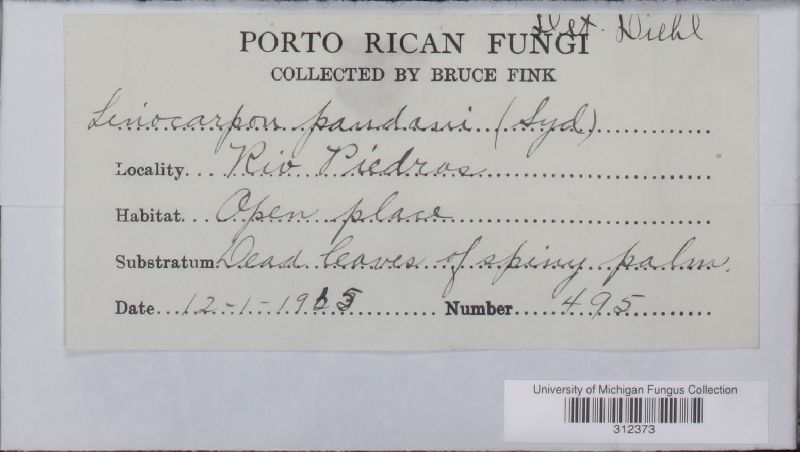 Det. Diehl
PORTO RICAN FUNGI
COLLECTED BY BRUCE FINK
Linocarpon pandani (Syd)
Locality... Rio Piedras
Habitat... Open place
Substratum. Dead leaves of spiny palm.
Date... 12-1-1915 Number... 495
University of Michigan Fungus Collection
312373